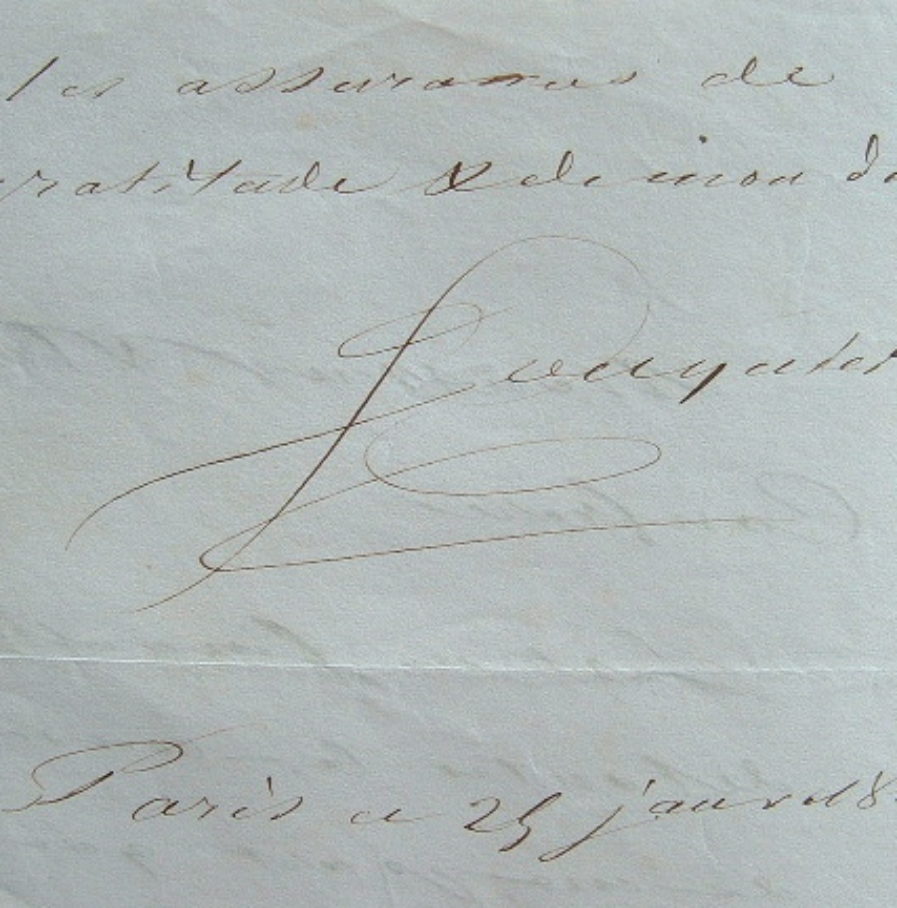 les assurances de
gratitude & de mon dé
Paris ce 25 janv 18